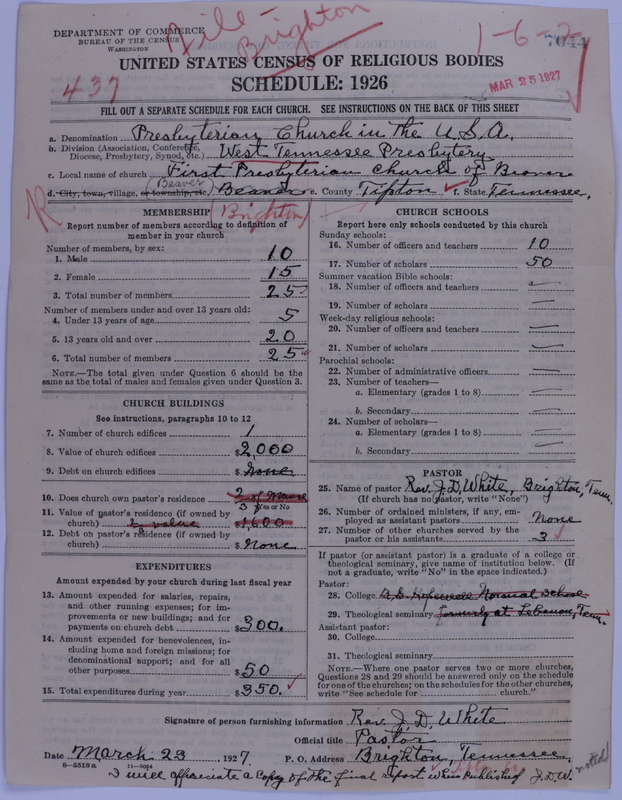 File
Brighton
1-6-2
7644
DEPARTMENT OF COMMERCE
BUREAU OF THE CENSUS
WASHINGTON
437
MAR 25 1927
UNITED STATES CENSUS OF RELIGIOUS BODIES
SCHEDULE: 1926
FILL OUT A SEPARATE SCHEDULE FOR EACH CHURCH. SEE INSTRUCTIONS ON THE BACK OF THIS SHEET
a. Denomination Presbyterian Church in the U.S.A.
b. Division (Association, Conference, Diocese, Presbytery, Synod, etc.) West Tennessee Presbytery
c. Local name of church First Presbyterian Church of Beaver
d. City, town, village, or township, etc. (Beaver) Beaver e. County Tipton f. State Tennessee.
(Brighton)
MEMBERSHIP
Report number of members according to definition of member in your church
Number of members, by sex:
1. Male 10
2. Female 15
3. Total number of members 25
Number of members under and over 13 years old:
4. Under 13 years of age 5
5. 13 years old and over 20
6. Total number of members 25
NOTE.—The total given under Question 6 should be the same as the total of males and females given under Question 3.
CHURCH BUILDINGS
See instructions, paragraphs 10 to 12
7. Number of church edifices 1
8. Value of church edifices $2,000
9. Debt on church edifices $ None
10. Does church own pastor's residence 2 of Manse
Yes or No
11. Value of pastor's residence (if owned by church) ½ value $1600
12. Debt on pastor's residence (if owned by church) $ None
EXPENDITURES
Amount expended by your church during last fiscal year
13. Amount expended for salaries, repairs, and other running expenses; for improvements or new buildings; and for payments on church debt $300.
14. Amount expended for benevolences, including home and foreign missions; for denominational support; and for all other purposes $50
15. Total expenditures during year $350.
CHURCH SCHOOLS
Report here only schools conducted by this church
Sunday schools:
16. Number of officers and teachers 10
17. Number of scholars 50
Summer vacation Bible schools:
18. Number of officers and teachers —
19. Number of scholars —
Week-day religious schools:
20. Number of officers and teachers —
21. Number of scholars —
Parochial schools:
22. Number of administrative officers —
23. Number of teachers—
a. Elementary (grades 1 to 8) —
b. Secondary —
24. Number of scholars—
a. Elementary (grades 1 to 8) —
b. Secondary —
PASTOR
25. Name of pastor Rev. J. D. White, Brighton, Tenn.
(If church has no pastor, write "None")
26. Number of ordained ministers, if any, employed as assistant pastors None
27. Number of other churches served by the pastor or his assistants 3
If pastor (or assistant pastor) is a graduate of a college or theological seminary, give name of institution below. (If not a graduate, write "No" in the space indicated.)
Pastor:
28. College B.S. Normal School
29. Theological seminary formerly at Lebanon, Tenn.
Assistant pastor:
30. College
31. Theological seminary
NOTE.—Where one pastor serves two or more churches, Questions 28 and 29 should be answered only on the schedule for one of the churches; on the schedules for the other churches, write "See schedule for church."
Signature of person furnishing information Rev. J. D. White
Official title Pastor
Date March 23, 1927. P. O. Address Brighton, Tennessee.
8—5518a 11—9044
I will appreciate a copy of the final report when published J.D.W.
noted